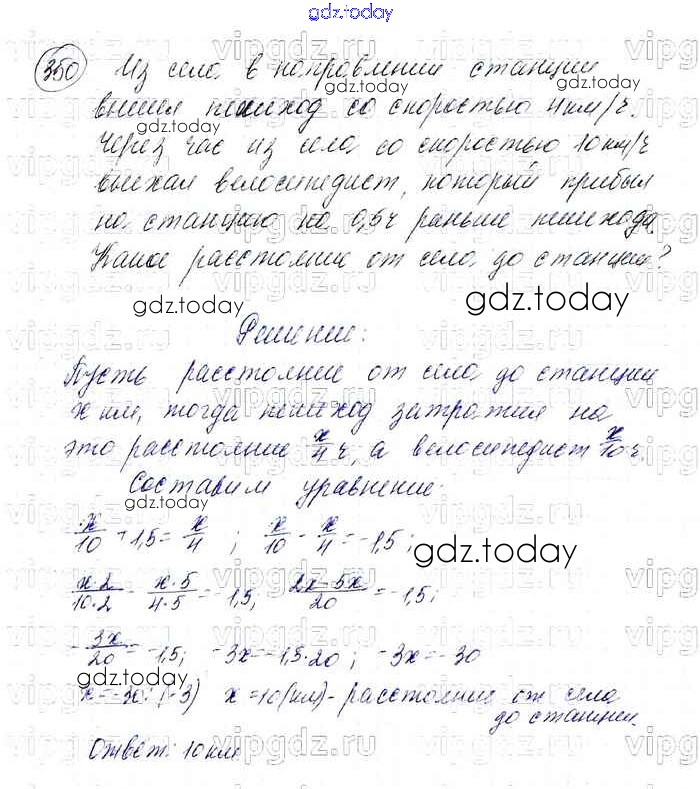 gdz.today
350 Из села в направлении станции
вышел пешеход со скоростью 4 км/ч.
Через час из села со скоростью 10 км/ч
выехал велосипедист, который прибыл
на станцию на 0,5 ч раньше пешехода.
Какое расстояние от села до станции?
gdz.today
Решение:
Пусть расстояние от села до станции
x км, тогда пешеход затратил на
это расстояние x/4 ч, а велосипедист x/10 ч.
Составим уравнение:
x/10 + 1,5 = x/4 ; x/10 - x/4 = -1,5 ;
gdz.today
x·2/10·2 - x·5/4·5 = -1,5; 2x-5x/20 = -1,5;
-3x/20 = -1,5; -3x = -1,5·20 ; -3x = -30
x = -30 : (-3) x = 10 (км) - расстояние от села
до станции.
Ответ: 10 км
vipgdz.ru